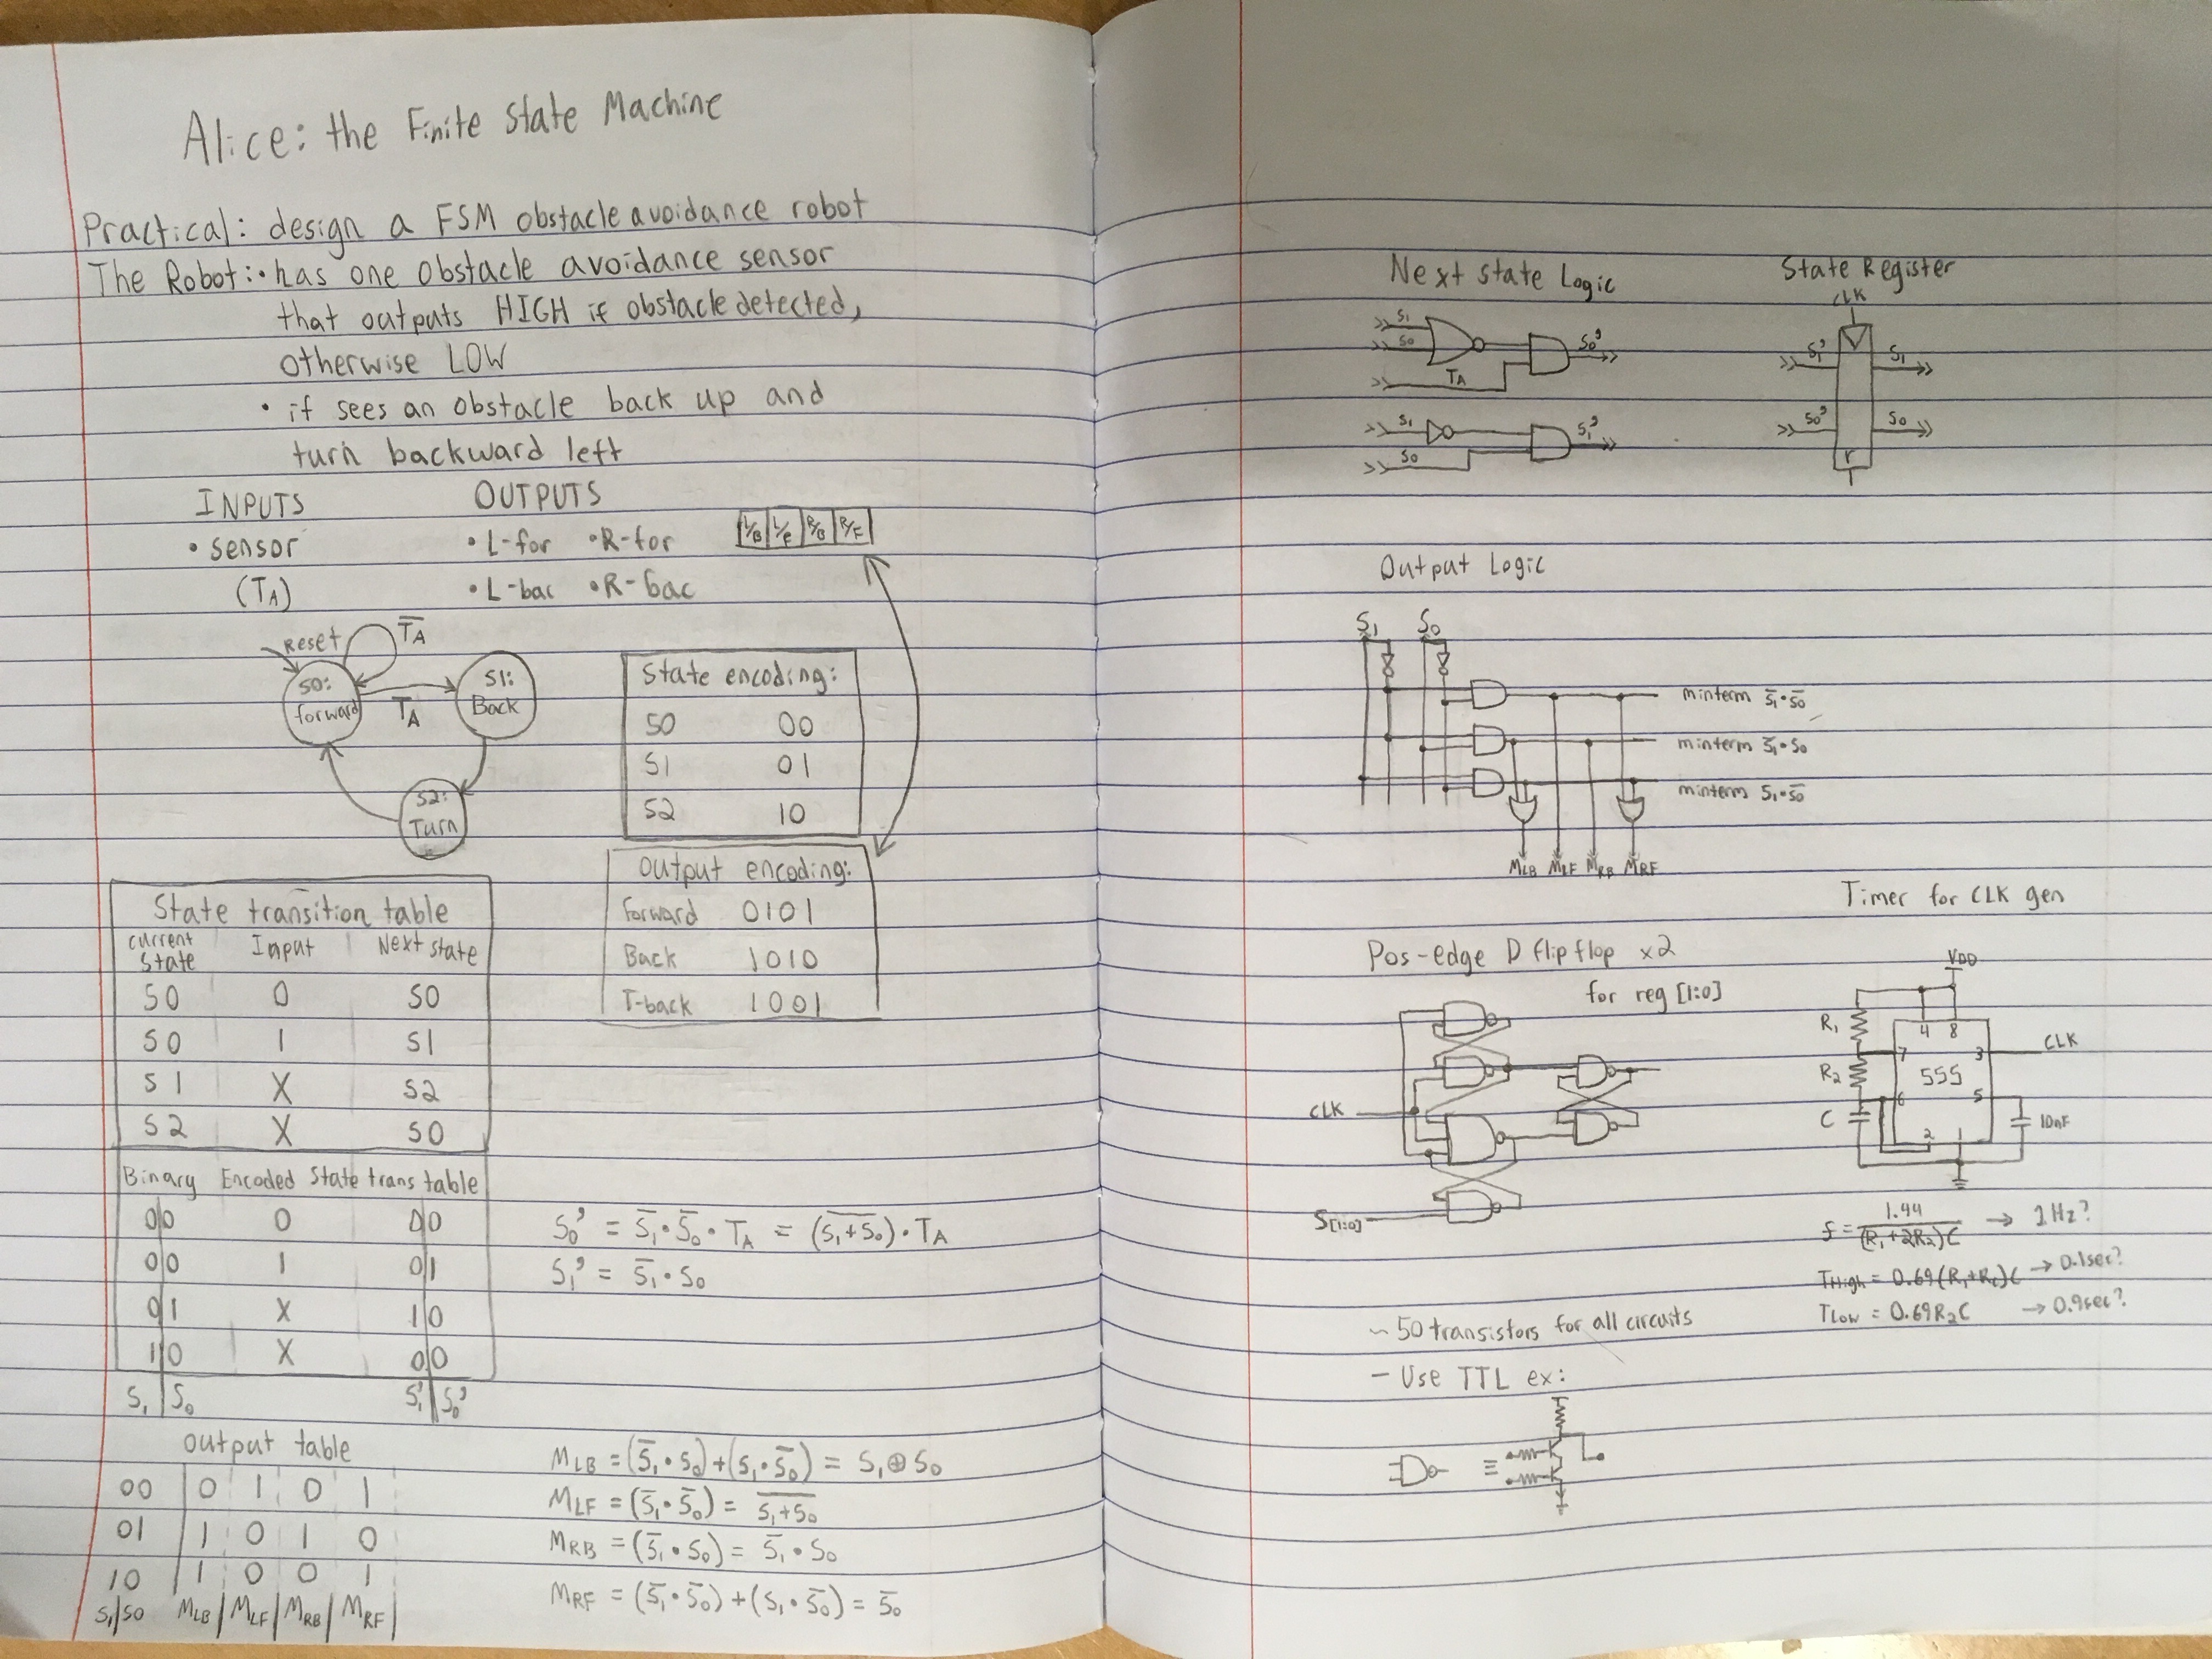 Alice: the Finite State Machine
Practical: design a FSM obstacle avoidance robot
The Robot: • has one obstacle avoidance sensor
that outputs HIGH if obstacle detected,
otherwise LOW
• if sees an obstacle back up and
turn backward left
INPUTS OUTPUTS
• sensor • L-for • R-for L/B L/F R/B R/F
(TA) • L-bac • R-bac
Reset T̅A̅
S0: forward
TA
S1: Back
S2: Turn
State encoding:
S0 00
S1 01
S2 10
Output encoding:
Forward 0101
Back 1010
T-back 1001
State transition table
current state Input Next state
S0 0 S0
S0 1 S1
S1 X S2
S2 X S0
Binary Encoded State trans table
0|0 0 0|0
0|0 1 0|1
0|1 X 1|0
1|0 X 0|0
S₁|S₀ S₁'|S₀'
S₀' = S̅₁•S̅₀•TA = (S̅₁̅+̅S̅₀̅)•TA
S₁' = S̅₁•S₀
output table
00 0 1 0 1
01 1 0 1 0
10 1 0 0 1
S₁|S0 MLB| MLF| MRB| MRF|
MLB = (S̅₁•S₀)+(S₁•S̅₀) = S₁⊕S₀
MLF = (S̅₁•S̅₀) = S̅₁̅+̅S̅₀̅
MRB = (S̅₁•S₀) = S̅₁•S₀
MRF = (S̅₁•S̅₀)+(S₁•S̅₀) = S̅₀
Next state Logic
S₁
S0
TA
S0'
S₁
S0
S₁'
State Register
CLK
S₁' S₁
S0' S0
r
Output Logic
S₁ S₀
minterm S̅₁•S̅0
minterm S̅₁•S0
minterm S₁•S̅0
MLB MLF MRB MRF
Pos-edge D flip flop x2
for reg [1:0]
CLK
S[1:0]
Timer for CLK gen
VDD
R₁ 4 8
7 3 CLK
R₂ 555
6 5
C 2 1 10nF
f = 1.44/(R₁+2R₂)C → 1Hz?
THigh = 0.69(R₁+R₂)C → 0.1sec?
TLow = 0.69R₂C → 0.9sec?
~ 50 transistors for all circuits
- Use TTL ex:
≡